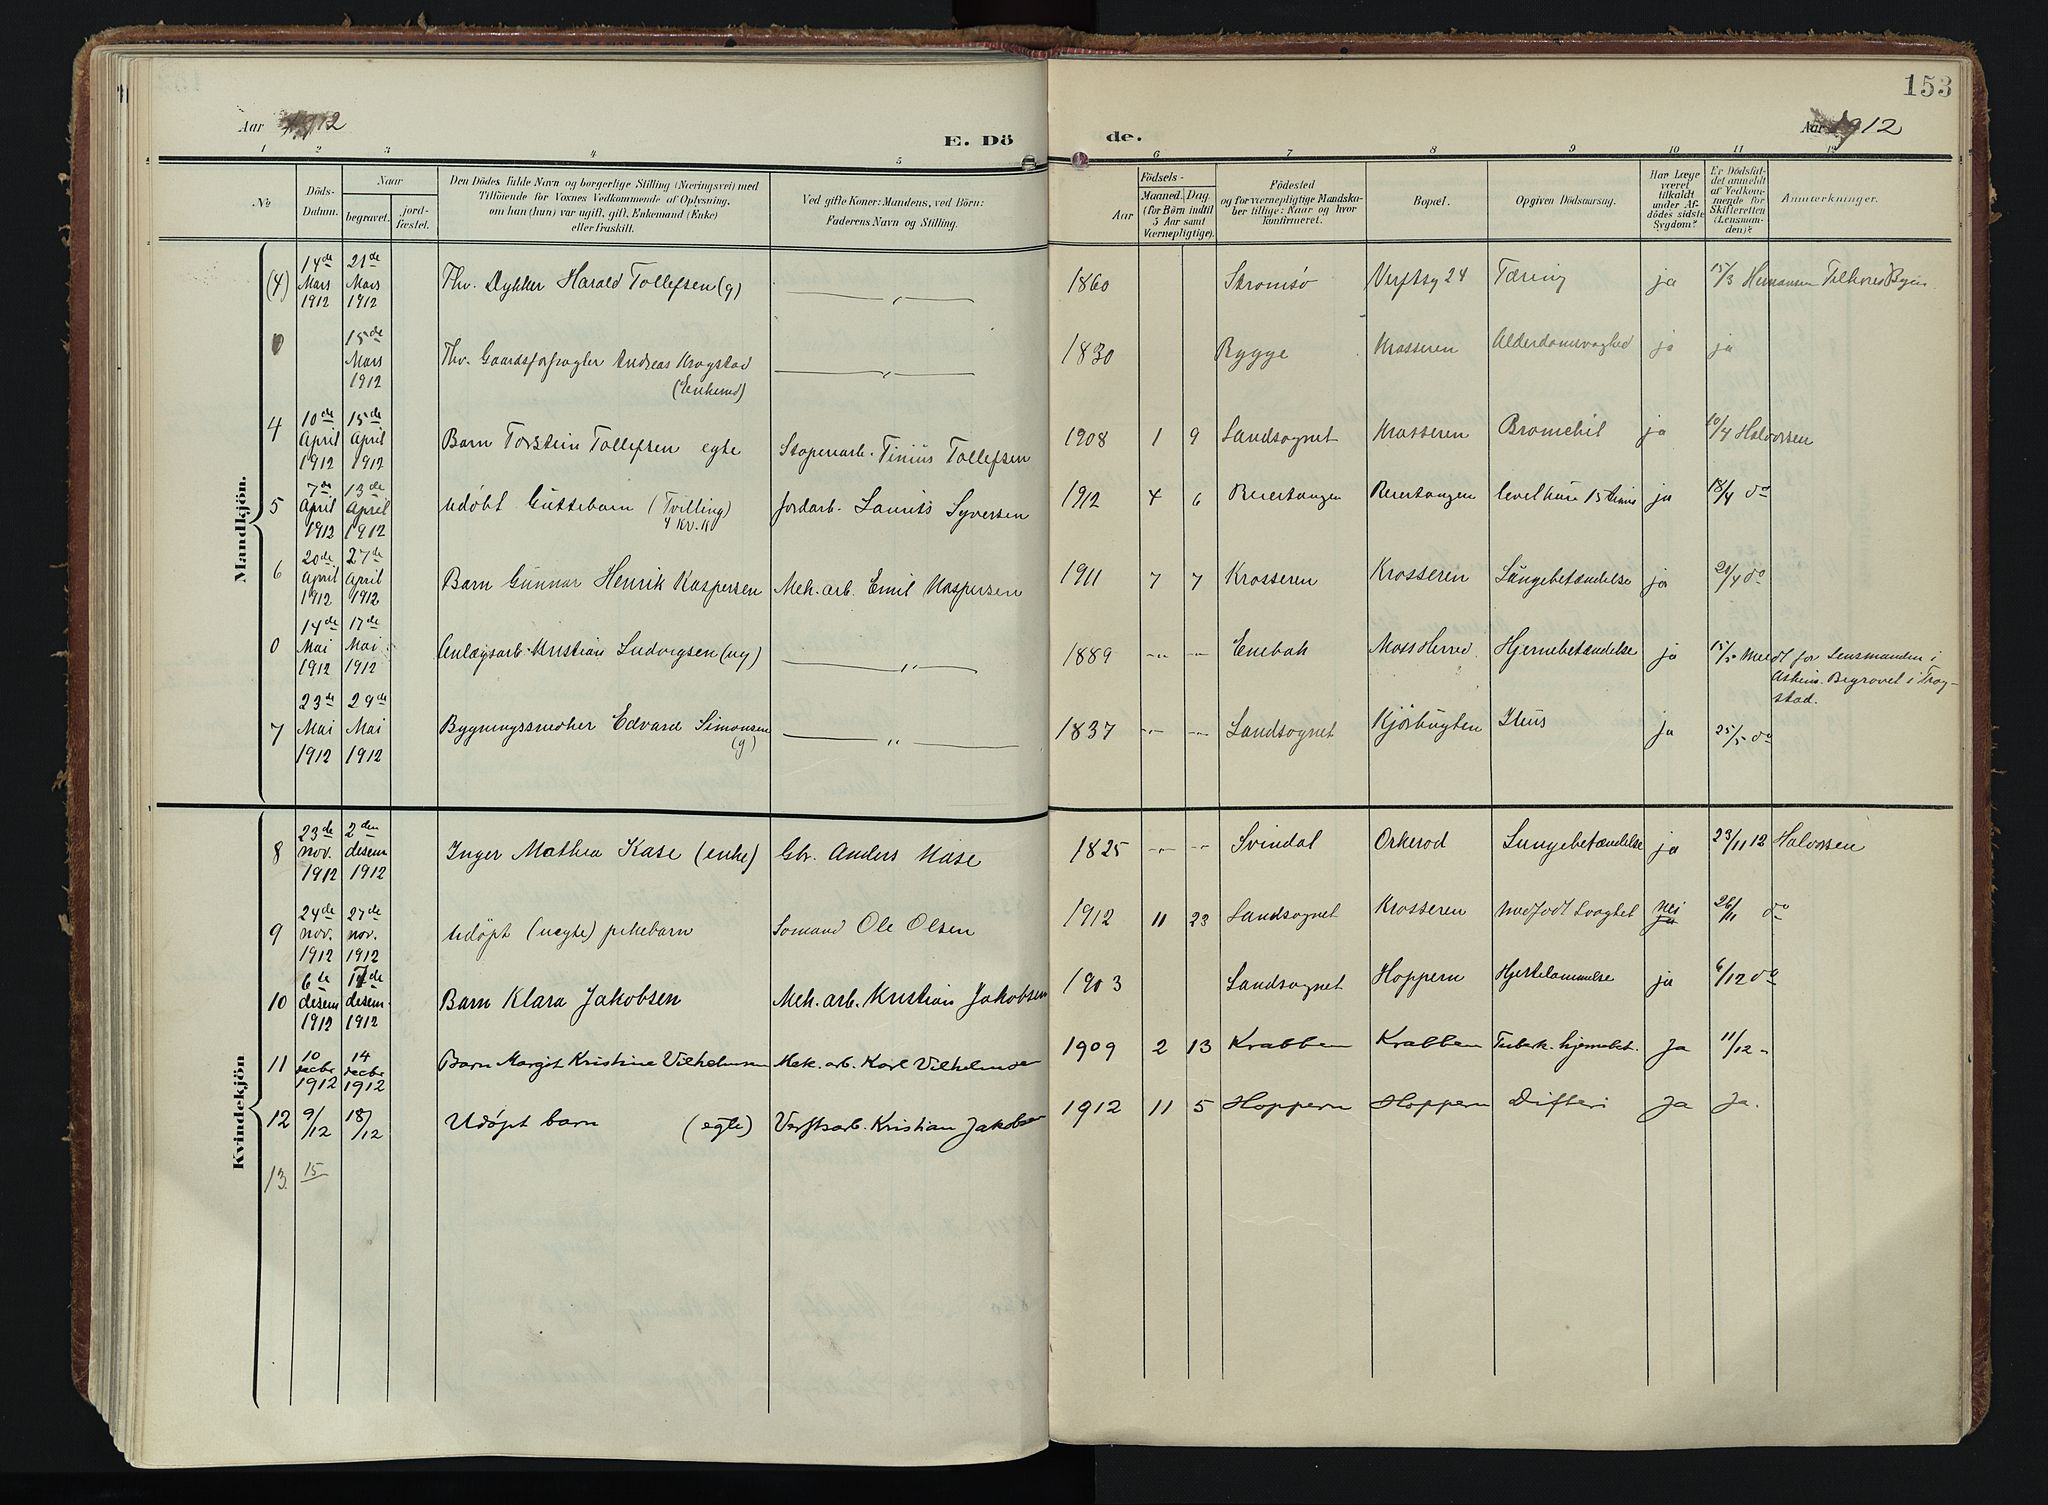 153
Aar 1912
E. Dö
de.
Aar 1912
1 2 3 4 5 6 7 8 9 10 11 12
№
Döds-
Datum.
Naar
begravet.
jord-
fæstet.
Den Dödes fulde Navn og borgerlige Stilling (Næringsvei) med
Tilföiende for Voxnes Vedkommende af Oplysning,
om han (hun) var ugift, gift, Enkemand (Enke)
eller fraskilt.
Ved gifte Koner: Mandens, ved Börn:
Faderens Navn og Stilling.
Födsels-
Aar
Maaned. Dag.
(for Börn indtil
5 Aar samt
Værnepligtige).
Födested
og for værnepligtige Mandska-
ber tillige: Naar og hvor
konfirmeret.
Bopæl.
Opgiven Dödsaarsag.
Har Læge
været
tilkaldt
under Af-
dödes sidste
Sygdom?
Er Dödsfal-
det anmeldt
af Vedkom-
mende for
Skifteretten
(Lensman-
den)?
Anmærkninger.
Mandkjön.
(4) 14de Mars 1912 21de Mars 1912 Fhv. Dykker Harald Tollefsen (g) — „ — 1860 Strømsø Verftsg 24 Tæring ja 15/3 Hermansen Tilhører Byen.
0 15de Mars 1912 Fhv. Gaardsforpagter Andreas Krogstad
(Enkemd) — „ — 1830 Rygge Krosseren Alderdomsvaghed ja ja
4 10de April 1912 15de April 1912 Barn Torstein Tollefsen egte Stoperiarb. Tinius Tollefsen 1908 1 9 Landsognet Krosseren Bronchit ja 10/4 Halvorsen
5 7de April 1912 13de April 1912 Udøbt Guttebarn (Tvilling) Jordarb. Laurits Syversen 1912 4 6 Reiertangen Reiertangen levet kun 15 timer ja 18/4 do
6 20de April 1912 27de April 1912 Barn Gunnar Henrik Kaspersen Mek. arb. Emil Kaspersen 1911 7 7 Krosseren Krosseren Lungebetændelse ja 20/4 do
0 14de Mai 1912 17de Mai 1912 Anlægsarb. Kristian Ludvigsen (ug) — „ — 1889 -„- -„- Enebak Moss Herred Hjernebetændelse ja 15/5 Meldt for Lensmanden i
Askim. Begravet i Trog-
stad.
7 23de Mai 1912 29de Mai 1912 Bygningssnedker Edvard Simonsen
(g) — „ — 1837 -„- -„- Landsognet Kjørbugten Ileus ja 25/5 do
Kvindekjön
8 23de nov. 1912 2den desem 1912 Inger Mathea Kase (enke) Gbr. Anders Kase 1825 -„- -„- Svindal Orkerød Lungebetændelse ja 23/11 12 Halvorsen
9 24de nov. 1912 27de nov. 1912 Udøpt (uegte) pikebarn Sømand Ole Olsen 1912 11 23 Landsognet Krosseren medfødt Svaghet nei ja 26/11 do
10 6de desem 1912 11de desem. 1912 Barn Klara Jakobsen Mek. arb. Kristian Jakobsen 1903 Landsognet Hoppern Hjertelammelse ja 6/12 do
11 10 decbr 1912 14 decbr 1912 Barn Margit Kristine Vilhelmsen Mek. arb. Karl Vilhelmsen 1909 2 13 Krabben Krabben Tuberk. hjernebet. Ja 11/12 -
12 9/12 18/12 Udøpt barn (egte) Verftsarb. Kristian Jakobsen 1912 11 5 Hoppern Hoppern Difteri Ja Ja.
13 15